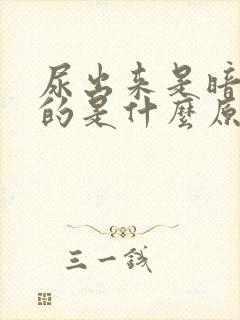 尿出来是暗
的是什麼原
三一钱